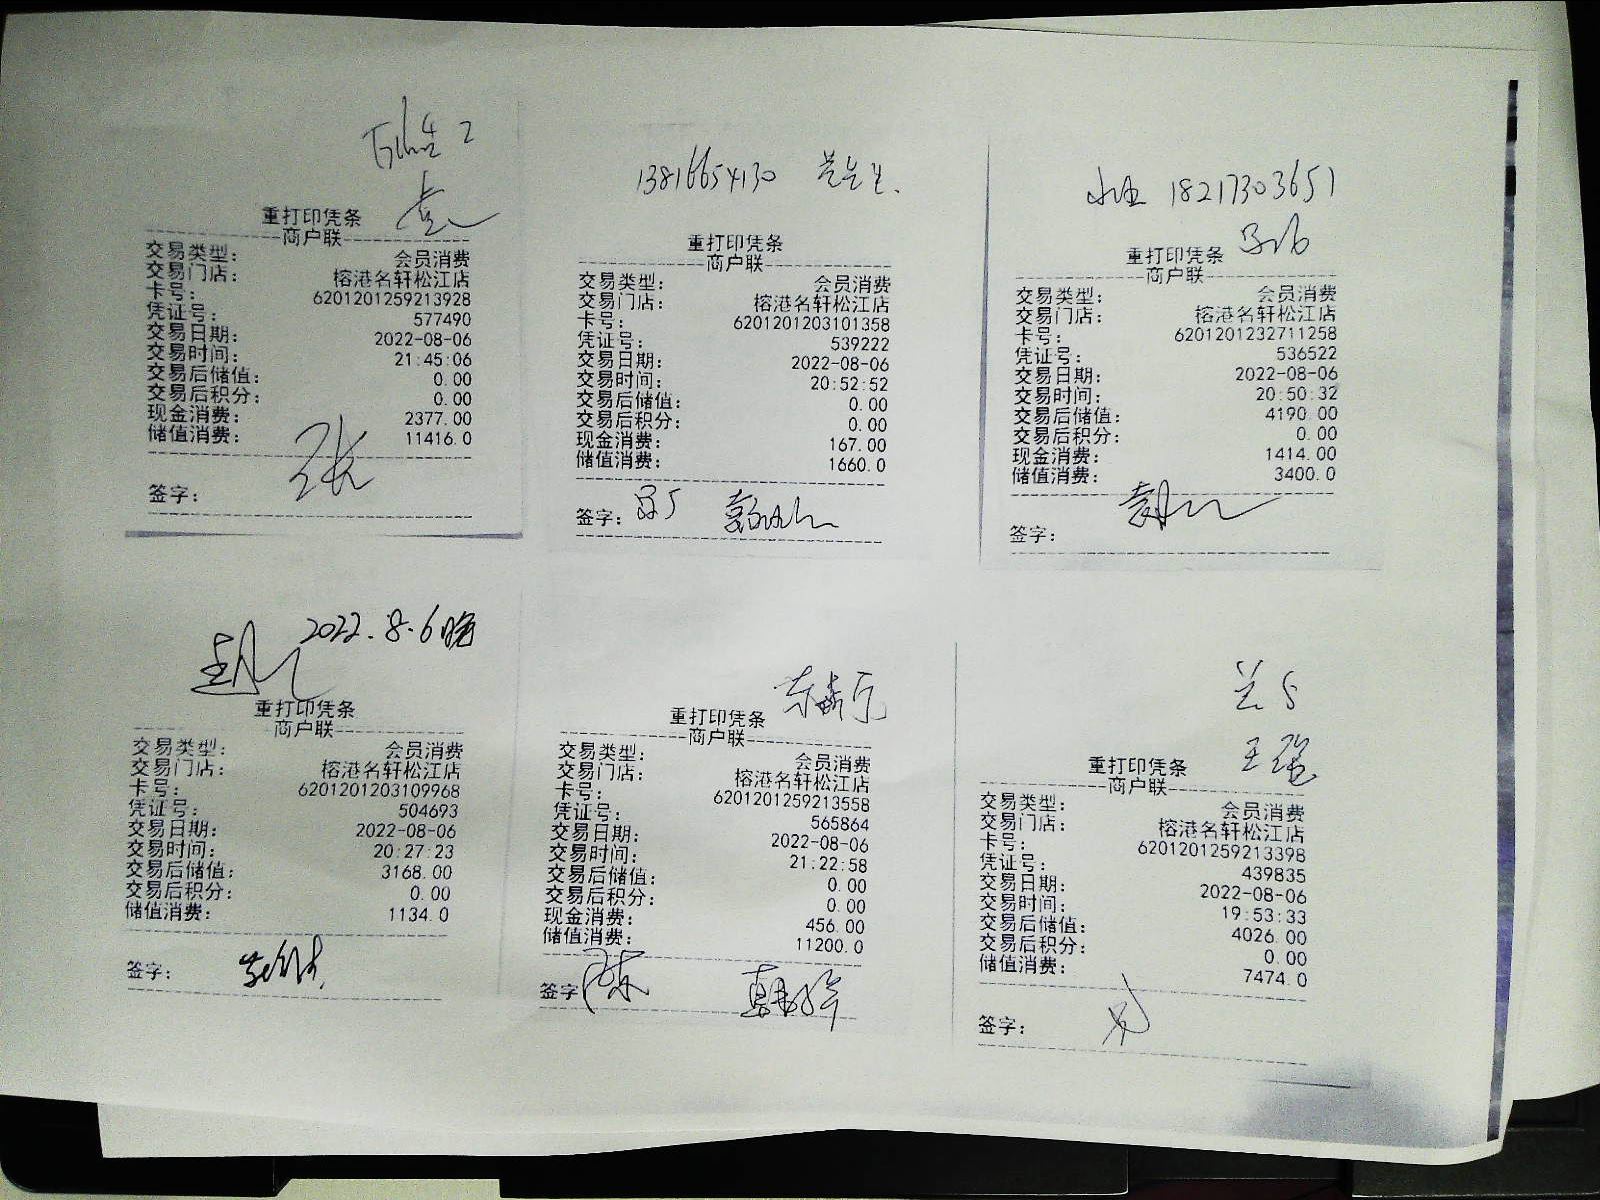 重打印凭条
商户联
交易类型： 会员消费
交易门店： 榕港名轩松江店
卡号： 6201201259213928
凭证号： 577490
交易日期： 2022-08-06
交易时间： 21:45:06
交易后储值： 0.00
交易后积分： 0.00
现金消费： 2377.00
储值消费： 11416.0
张
签字：
13816654130
重打印凭条
商户联
交易类型： 会员消费
交易门店： 榕港名轩松江店
卡号： 6201201203101358
凭证号： 539222
交易日期： 2022-08-06
交易时间： 20:52:52
交易后储值： 0.00
交易后积分： 0.00
现金消费： 167.00
储值消费： 1660.0
签字：
18217303651
重打印凭条
商户联
交易类型： 会员消费
交易门店： 榕港名轩松江店
卡号： 6201201232711258
凭证号： 536522
交易日期： 2022-08-06
交易时间： 20:50:32
交易后储值： 4190.00
交易后积分： 0.00
现金消费： 1414.00
储值消费： 3400.0
签字：
2022.8.6晚
重打印凭条
商户联
交易类型： 会员消费
交易门店： 榕港名轩松江店
卡号： 6201201203109968
凭证号： 504693
交易日期： 2022-08-06
交易时间： 20:27:23
交易后储值： 3168.00
交易后积分： 0.00
储值消费： 1134.0
签字：
重打印凭条
商户联
交易类型： 会员消费
交易门店： 榕港名轩松江店
卡号： 6201201259213558
凭证号： 565864
交易日期： 2022-08-06
交易时间： 21:22:58
交易后储值： 0.00
交易后积分： 0.00
现金消费： 456.00
储值消费： 11200.0
签字 陈
兰5
王强
重打印凭条
商户联
交易类型： 会员消费
交易门店： 榕港名轩松江店
卡号： 6201201259213398
凭证号： 439835
交易日期： 2022-08-06
交易时间： 19:53:33
交易后储值： 4026.00
交易后积分： 0.00
储值消费： 7474.0
签字：